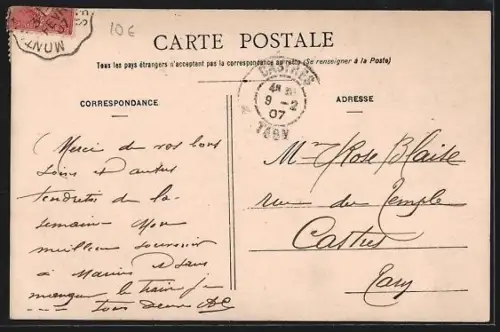 10€
MONT
CARTE POSTALE
Tous les pays étrangers n'acceptent pas la correspondance au recto (Se renseigner à la Poste)
CASTRES
9 -2
07
TARN
CORRESPONDANCE
ADRESSE
Merci de vos bons
soins et autres
tendretés de la
semaine Mon
meilleur souvenir
à Marius et sans
manquer le train je
tous deux
Rose Blaise
rue du Temple
Castres
Tarn